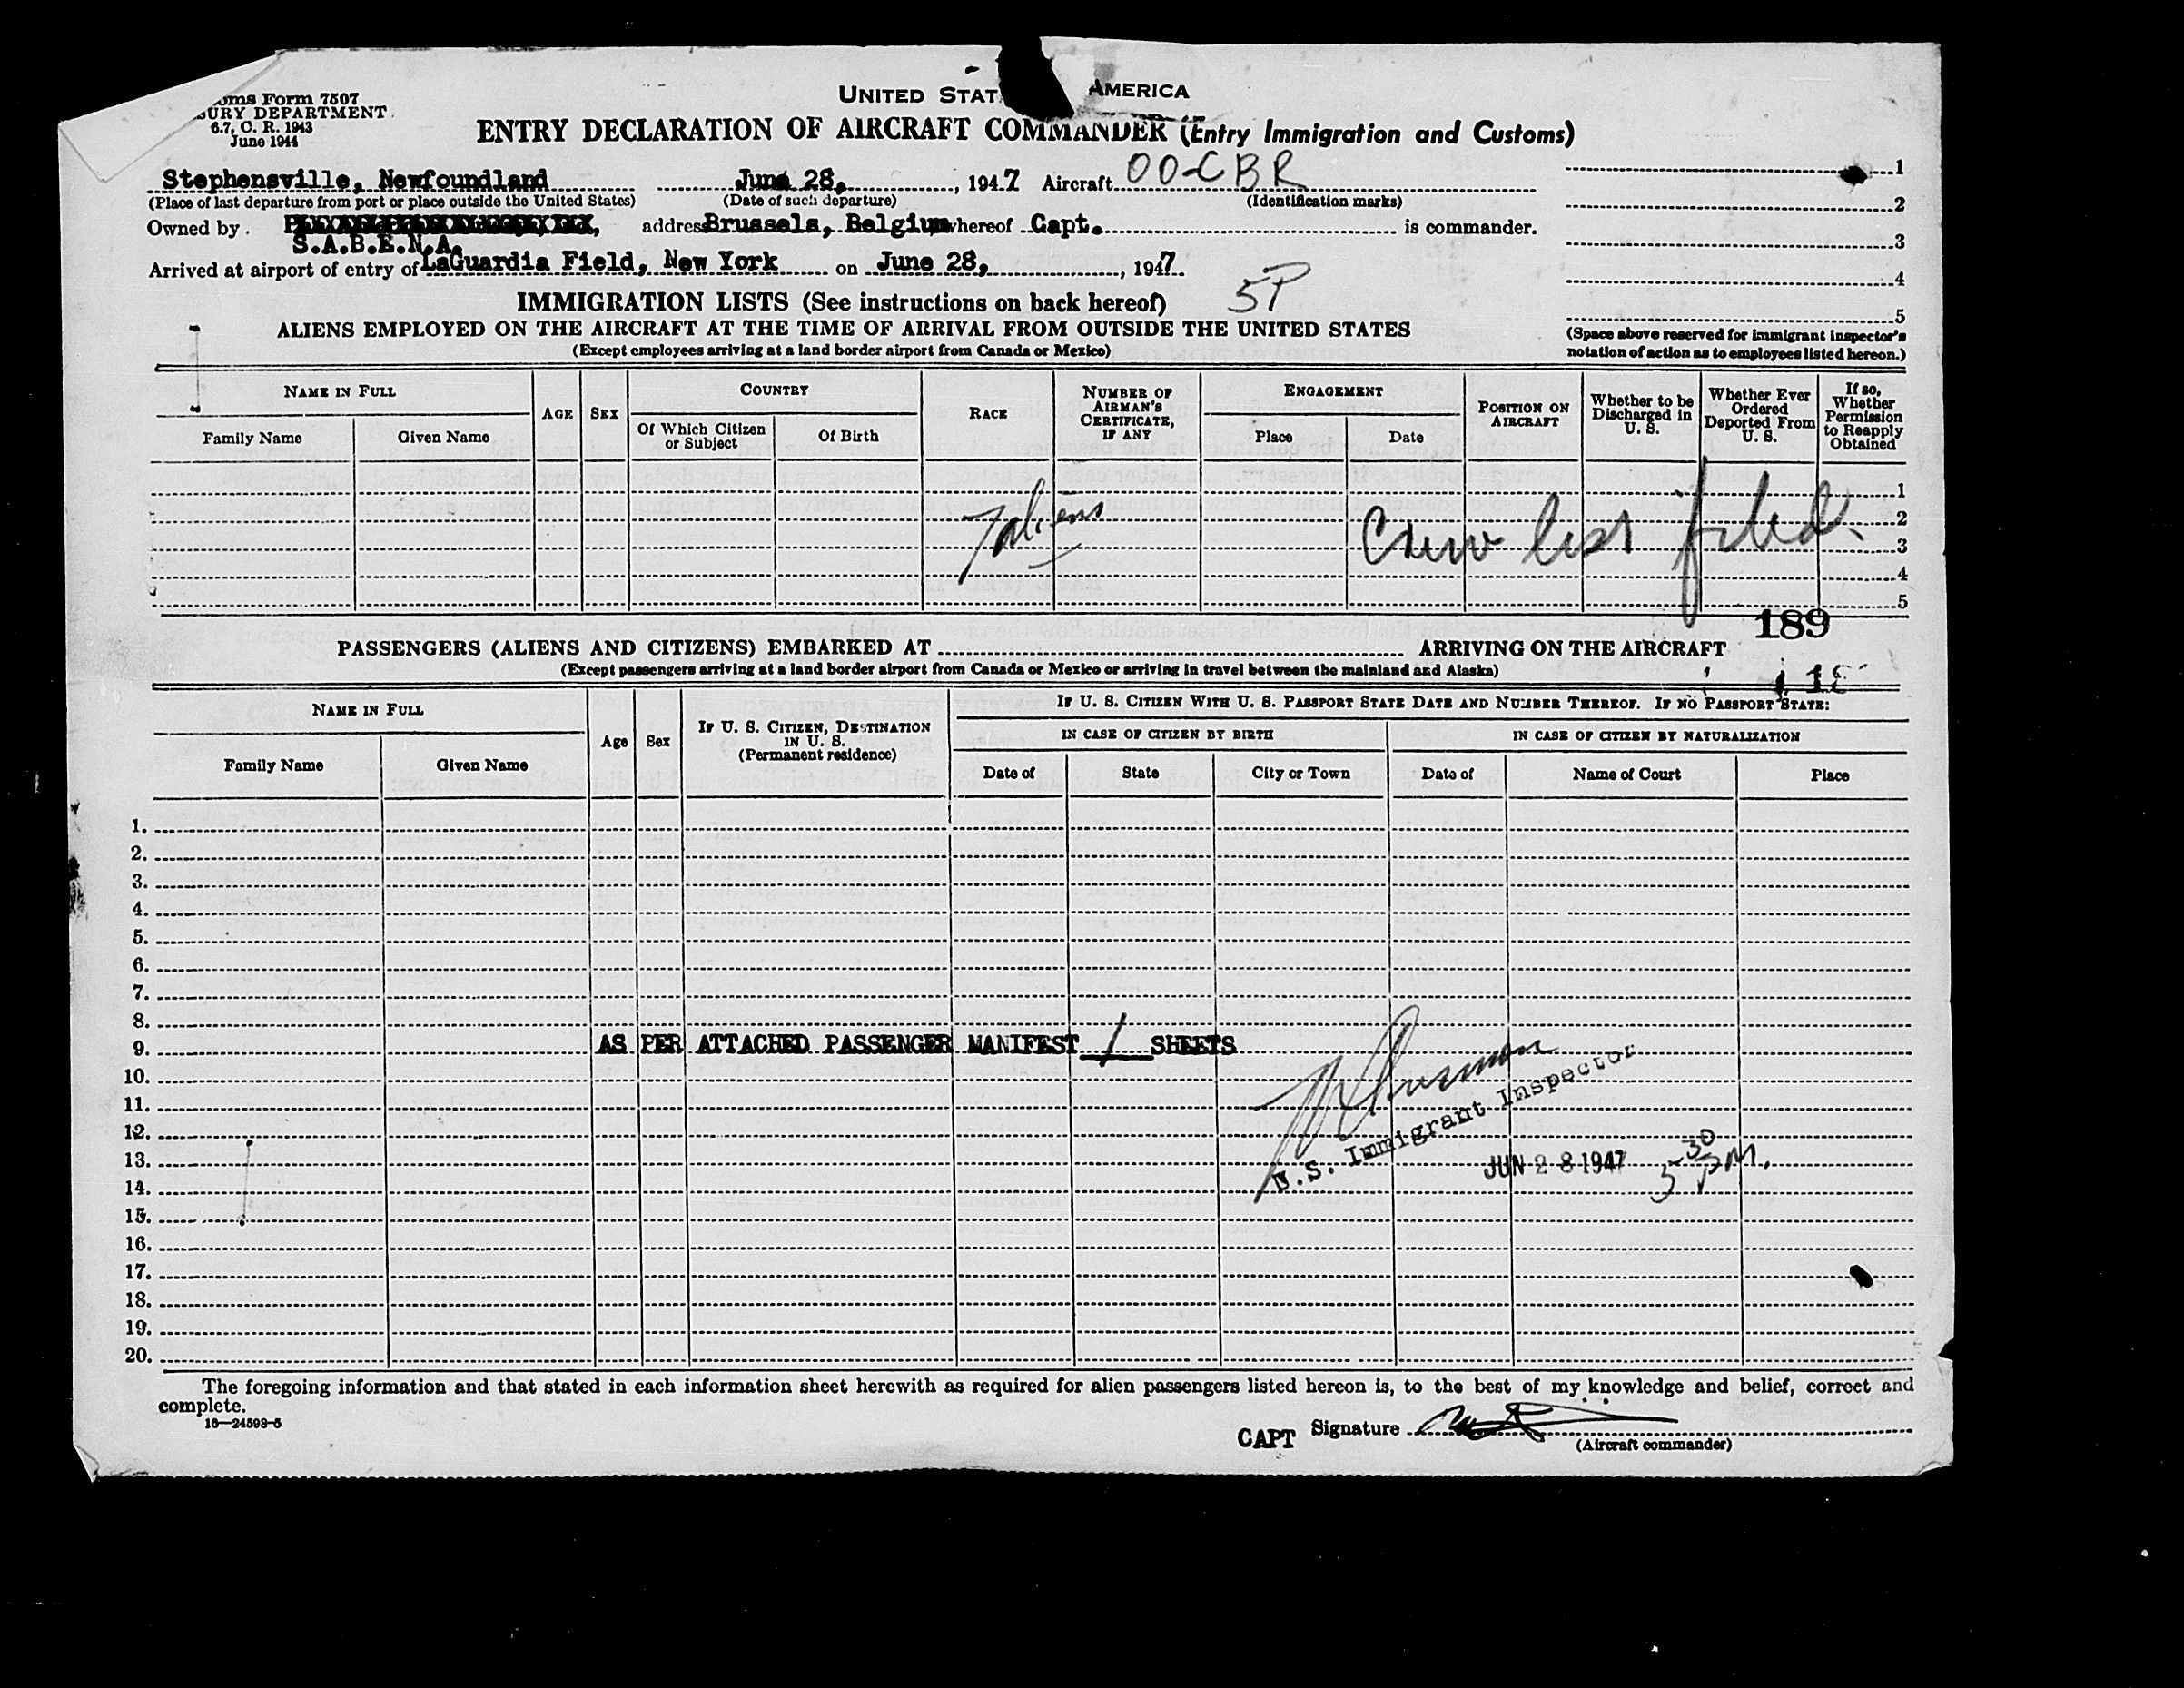 oms Form 7507
URY DEPARTMENT
6.7, C. R. 1943
June 1944
UNITED STAT AMERICA
ENTRY DECLARATION OF AIRCRAFT COMMANDER (Entry Immigration and Customs)
Stephensville, Newfoundland June 28, , 1947 Aircraft OO-CBR
(Place of last departure from port or place outside the United States) (Date of such departure) (Identification marks)
Owned by address Brussels, Belgium whereof Capt. is commander.
S.A.B.E.N.A.
Arrived at airport of entry of LaGuardia Field, New York on June 28, , 1947
1
2
3
4
5
(Space above reserved for immigrant inspector's
notation of action as to employees listed hereon.)
5P
IMMIGRATION LISTS (See instructions on back hereof)
ALIENS EMPLOYED ON THE AIRCRAFT AT THE TIME OF ARRIVAL FROM OUTSIDE THE UNITED STATES
(Except employees arriving at a land border airport from Canada or Mexico)
NAME IN FULL
Family Name Given Name
AGE SEX
COUNTRY
Of Which Citizen or Subject Of Birth
RACE
NUMBER OF AIRMAN'S CERTIFICATE, IF ANY
ENGAGEMENT
Place Date
POSITION ON AIRCRAFT
Whether to be Discharged in U. S.
Whether Ever Ordered Deported From U. S.
If so, Whether Permission to Reapply Obtained
1
2
3
4
5
7 aliens Crew list filed
189
PASSENGERS (ALIENS AND CITIZENS) EMBARKED AT ARRIVING ON THE AIRCRAFT
(Except passengers arriving at a land border airport from Canada or Mexico or arriving in travel between the mainland and Alaska)
NAME IN FULL
Family Name Given Name
Age Sex
IF U. S. CITIZEN, DESTINATION IN U. S.
(Permanent residence)
IF U. S. CITIZEN WITH U. S. PASSPORT STATE DATE AND NUMBER THEREOF. IF NO PASSPORT STATE:
IN CASE OF CITIZEN BY BIRTH IN CASE OF CITIZEN BY NATURALIZATION
Date of State City or Town Date of Name of Court Place
1.
2.
3.
4.
5.
6.
7.
8.
9. AS PER ATTACHED PASSENGER MANIFEST 1 SHEETS
10.
11.
12.
U.S. Immigrant Inspector
13. JUN 28 1947 5 30 PM.
14.
15.
16.
17.
18.
19.
20.
The foregoing information and that stated in each information sheet herewith as required for alien passengers listed hereon is, to the best of my knowledge and belief, correct and
complete.
16—24598-5
CAPT Signature
(Aircraft commander)